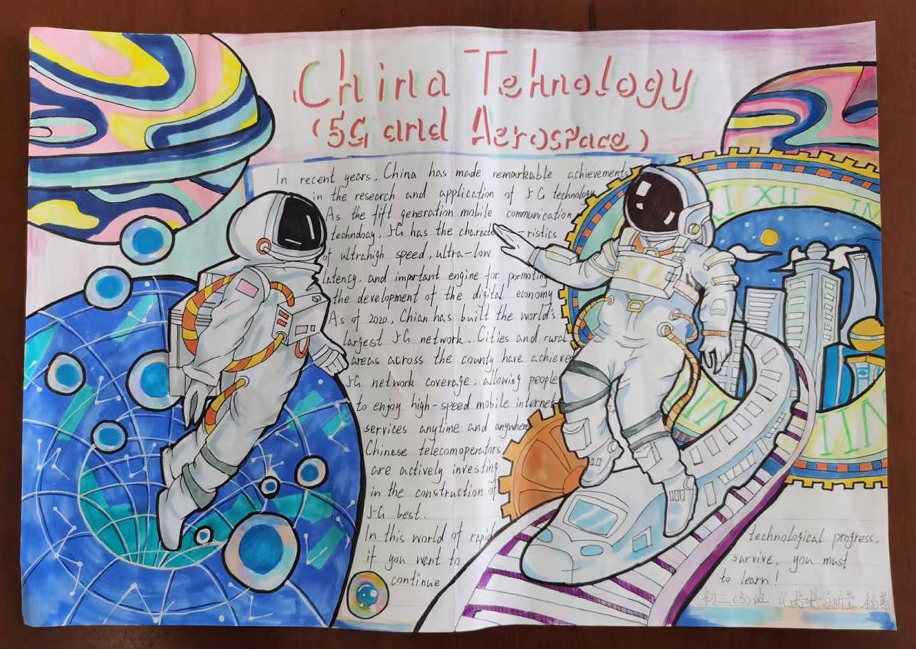 China Tehnology
(5G and Aerospace)
In recent years, China has made remarkable achievements
in the research and application of 5G technology
As the fift generation mobile communication
technology, 5G has the characte-ristics
of ultrahigh speed, ultra-low
latency, and important engine for pormoting
the development of the digital economy
As of 2020, Chian has built the world's
largest 5G network. Cities and rural
areas across the county have achieve
5G network coverage, allowing people
to enjoy high-speed mobile internet
services anytime and anywhere
Chinese telecomoperators
are actively investing
in the construction of
5G best.
In this world of rapid technological progress,
if you went to survive, you must
continue to learn!
XI XII
初三(3)班